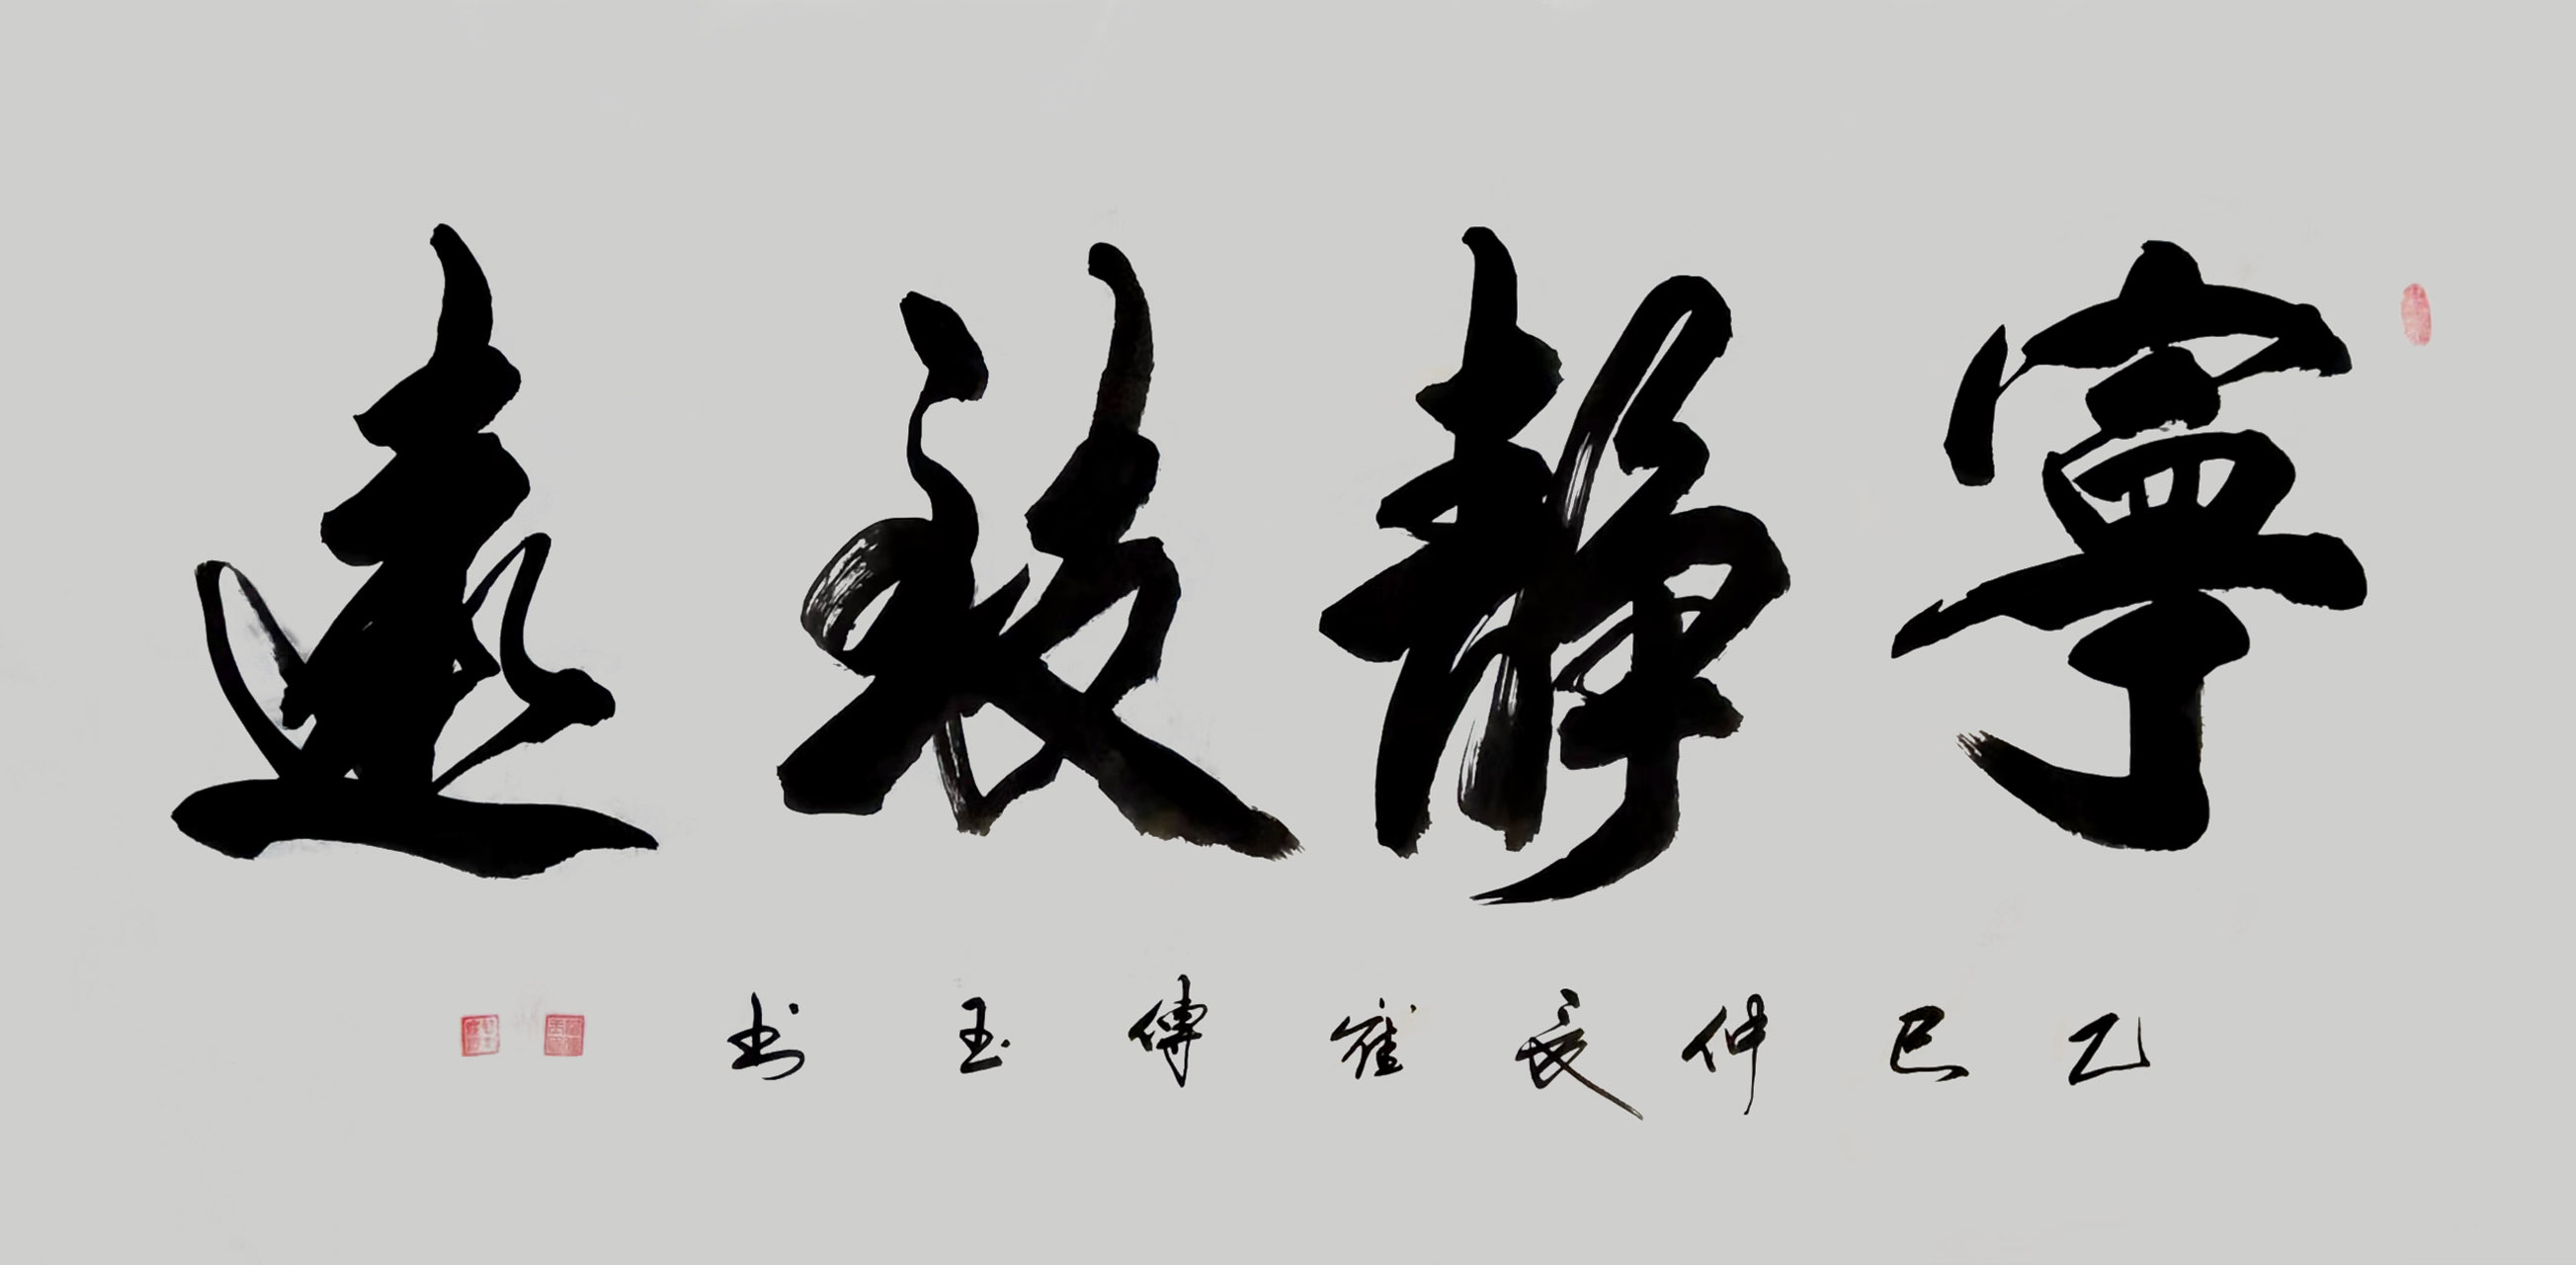 寧靜致遠
乙巳仲夏崔傳玉书